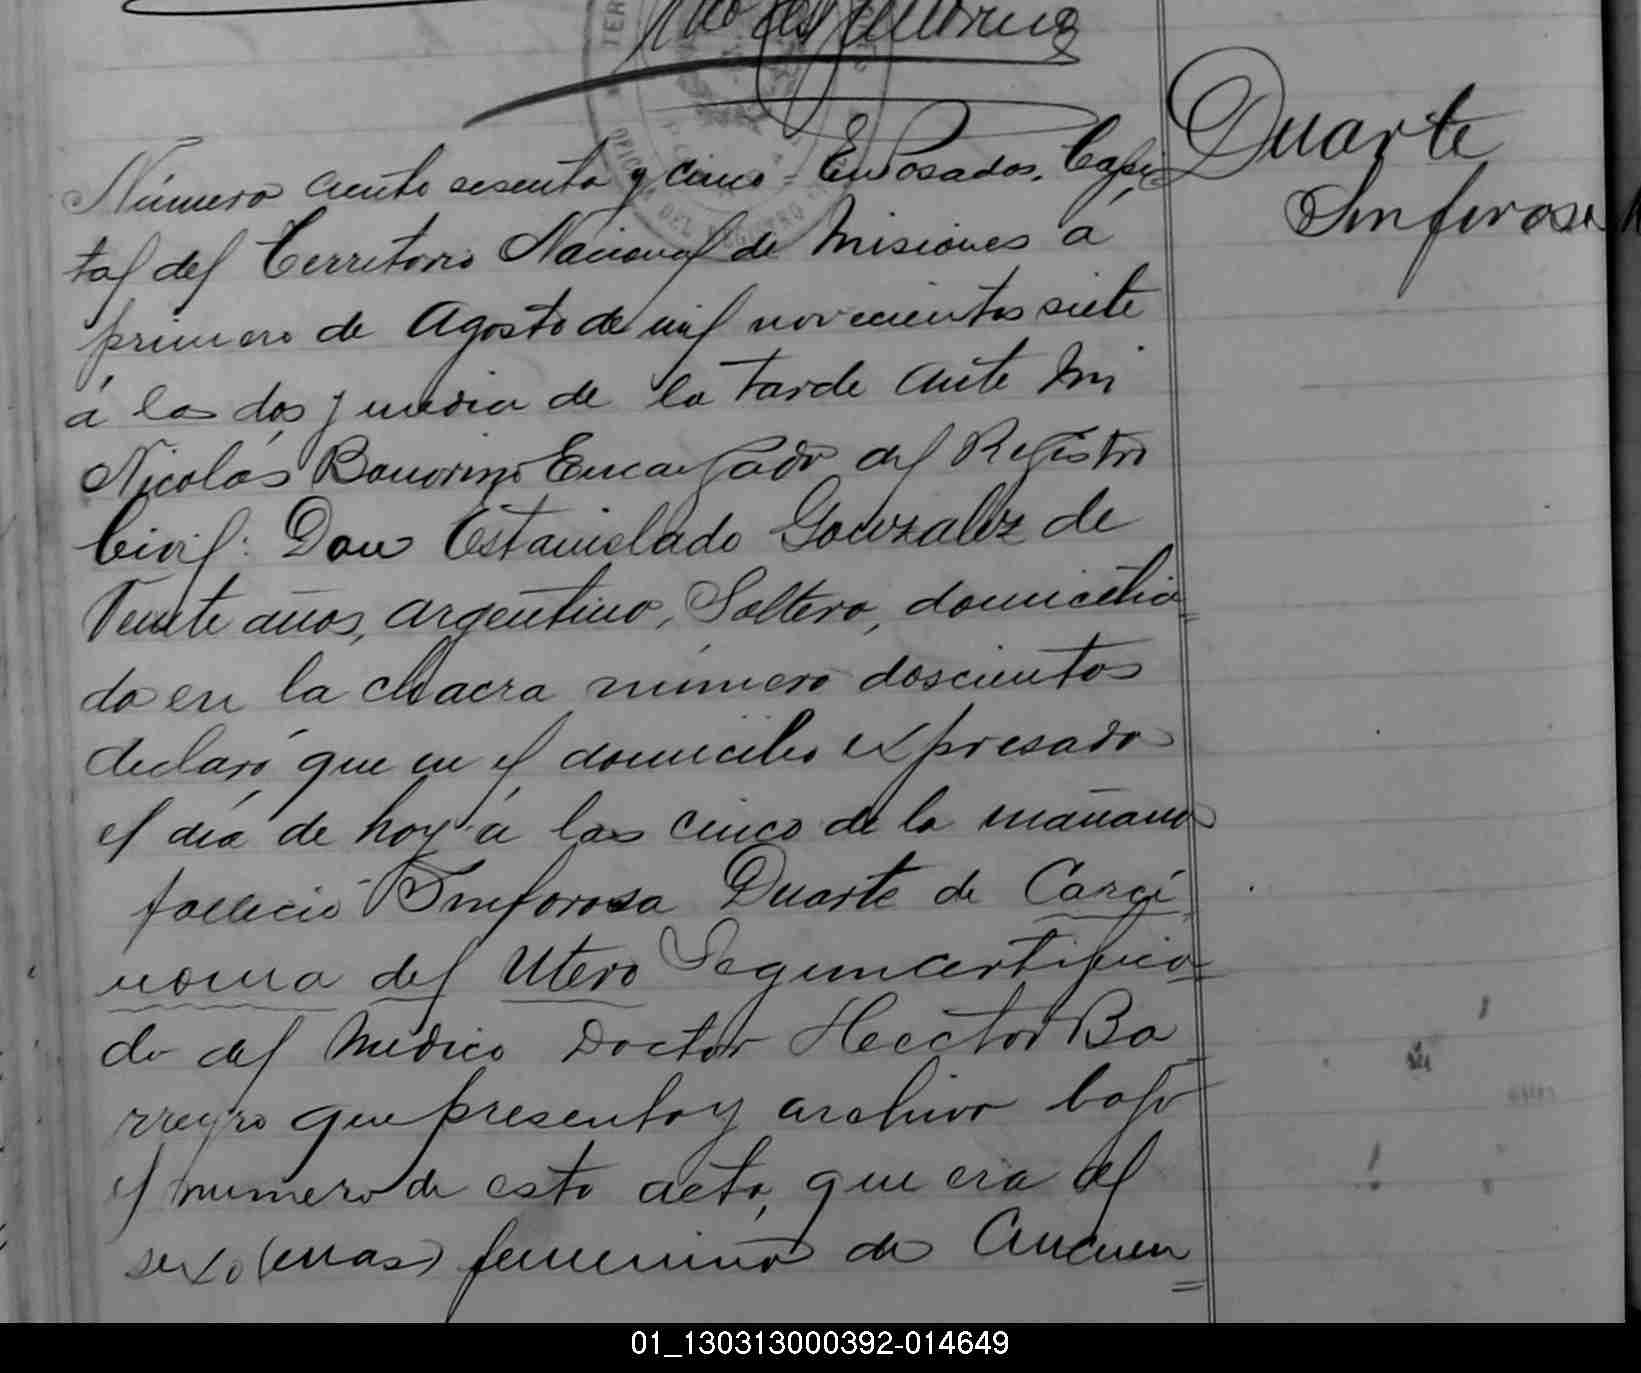 Duarte
Sinforosa
Número ciento sesenta y cinco = En Posadas, Capi
tal del Territorio Nacional de Misiones á
primero de Agosto de mil novecientos siete
á las dos y media de la tarde ante mi
Nicolás Bonorino Encargado del Registro
Civil: Don Estanislado Gonzalez de
Veinte años, argentino, Soltero, domicilia
do en la chacra número doscientos
declaró que en el domicilio expresado
el día de hoy á las cinco de la mañana
falleció Sinforosa Duarte de Carci
noma del Utero Segun certifica
do del Médico Doctor Hecctor Ba
rreyro que presento y archivo bajo
el número de esta acta, que era del
sexo (mas) femenino de Cincuen
01_130313000392-014649